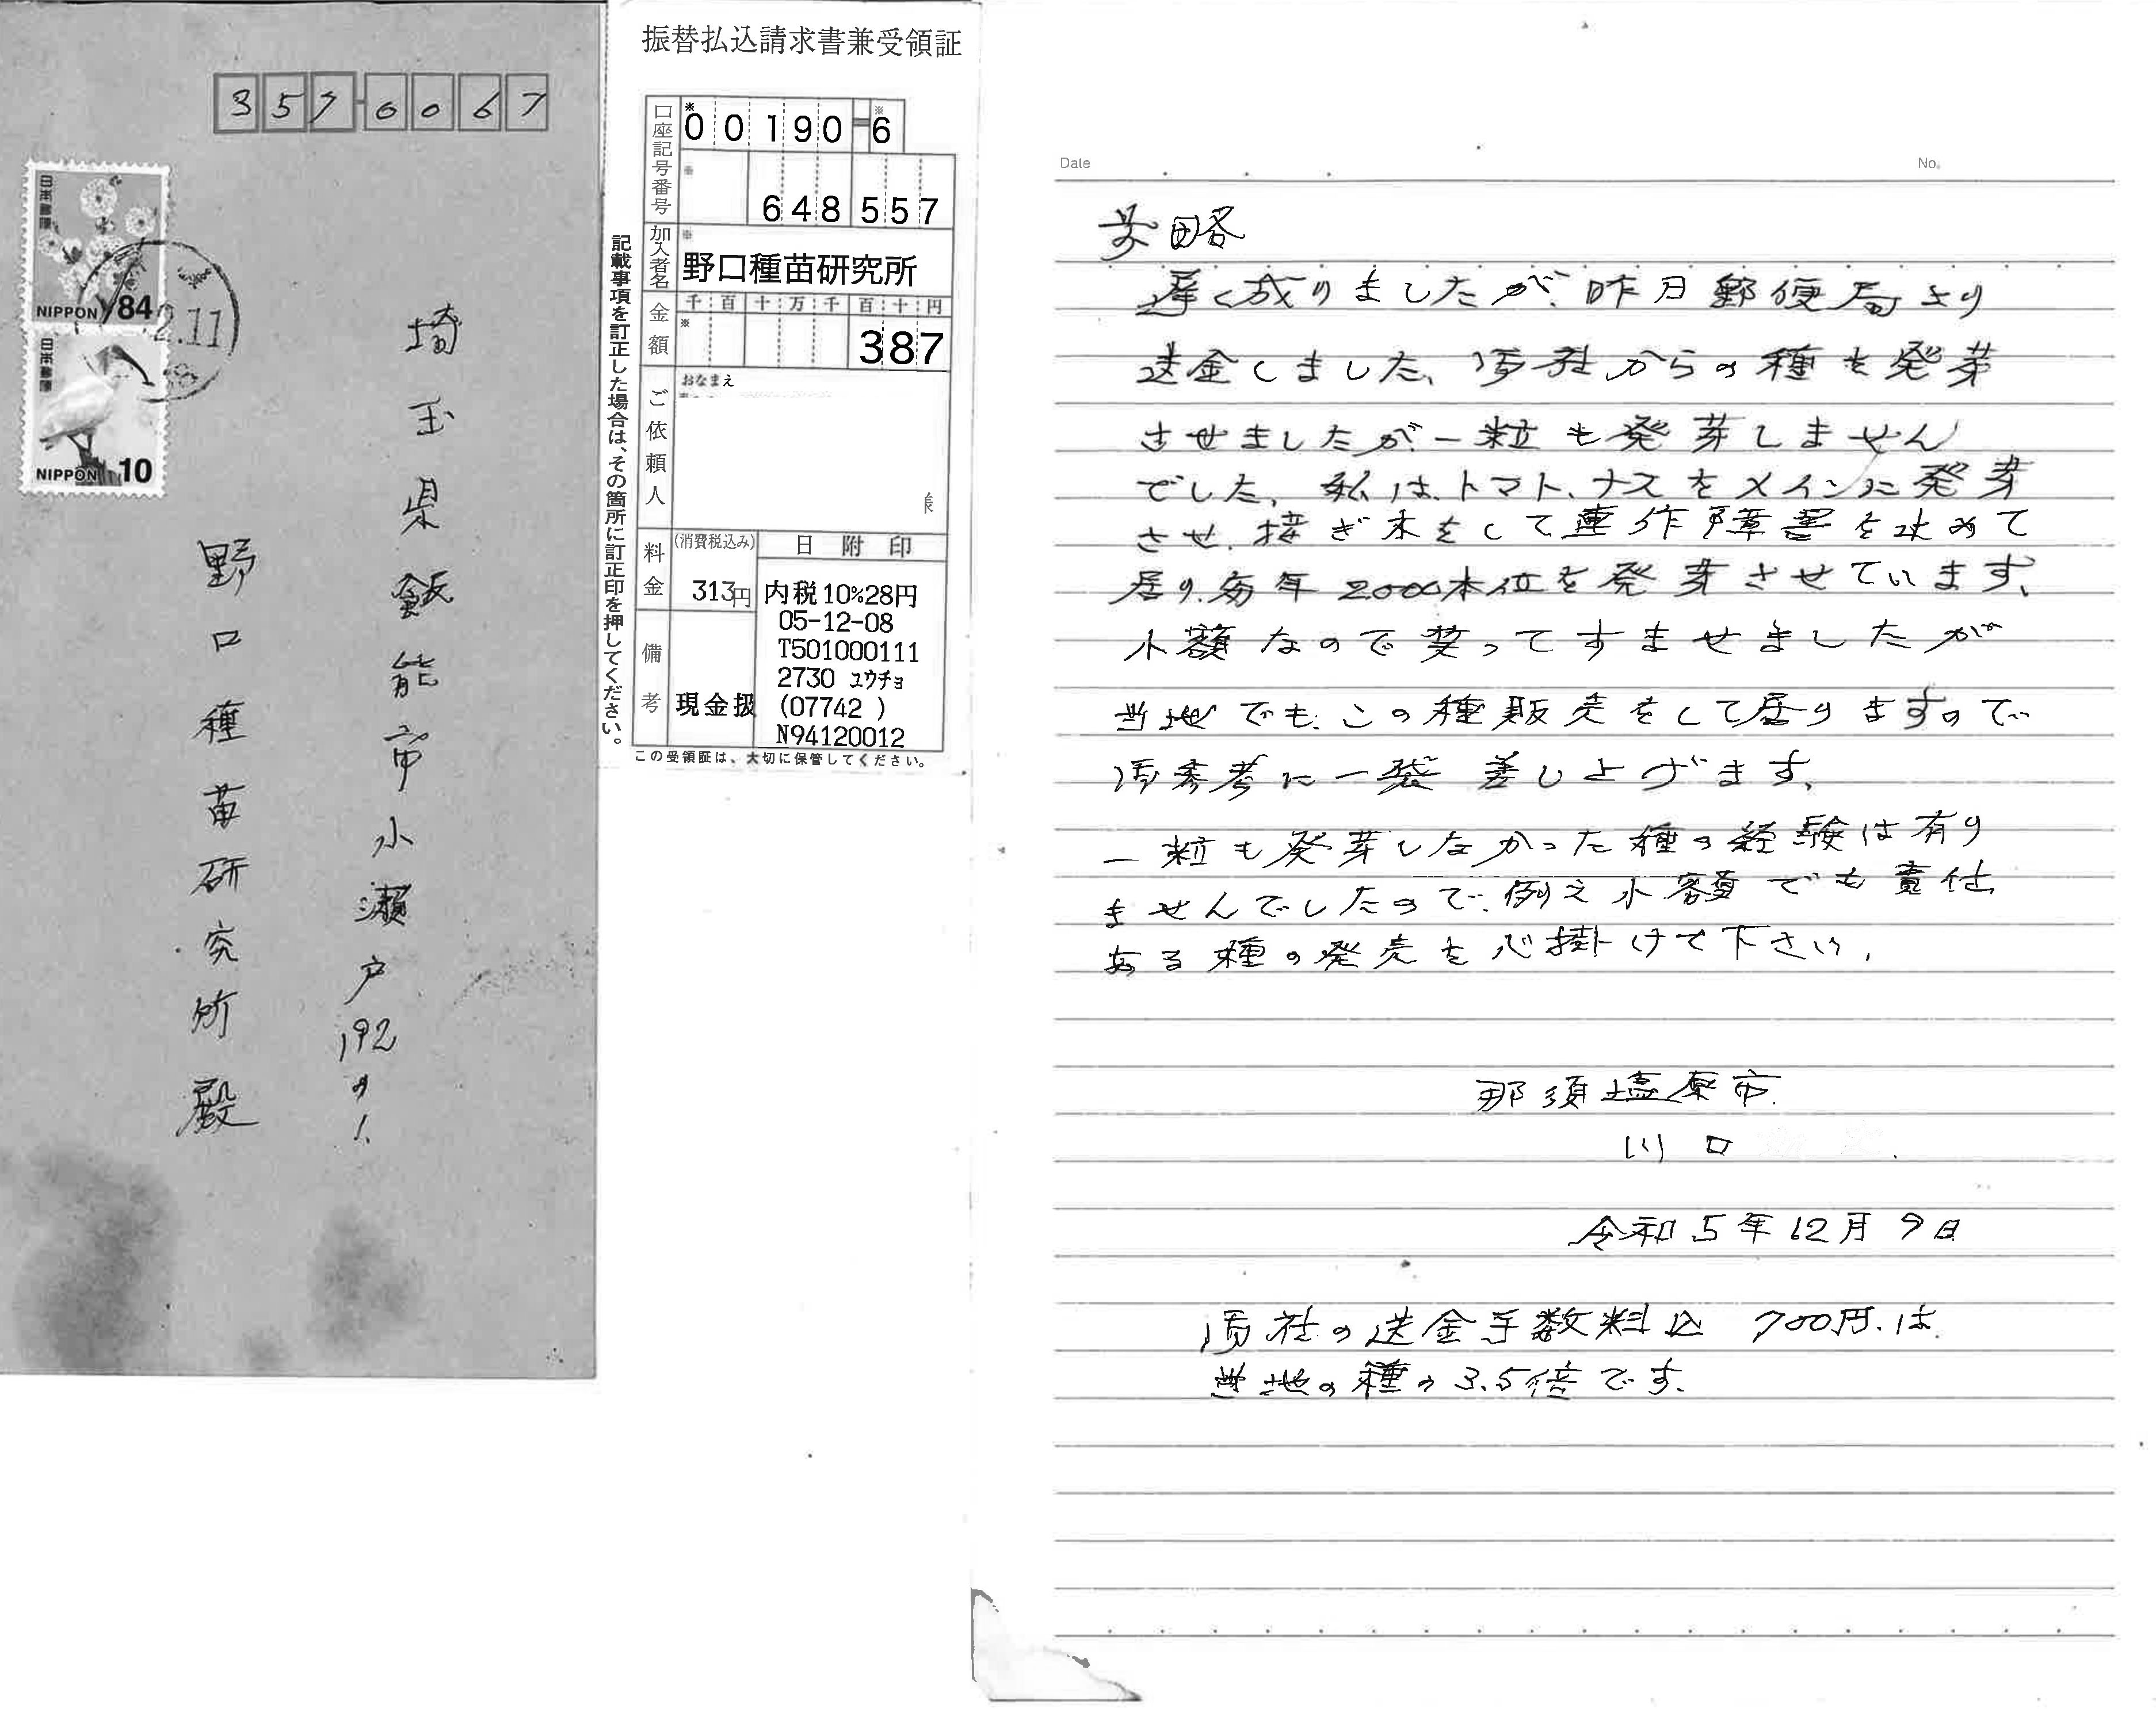 357-0067
日本郵便
NIPPON 84
2.11
日本郵便
NIPPON 10
埼玉県飯能市小瀬戸192の1
野口種苗研究所殿
振替払込請求書兼受領証
記載事項を訂正した場合は、その箇所に訂正印を押してください。
口座記号番号
※
00190-6
※
648557
加入者名
※
野口種苗研究所
金額
千百十万千百十円
※
387
ご依頼人
おなまえ
様
料金
(消費税込み)
313円
日附印
内税10%28円
05-12-08
T501000111
2730 ユウチョ
(07742 )
N94120012
備考
現金扱
この受領証は、大切に保管してください。
Date
No.
前略
遅く成りましたが、昨日郵便局より
送金しました、貴社からの種を発芽
させましたが一粒も発芽しません
でした、私は、トマト、ナスをメインに発芽
させ、接ぎ木をして連作障害を止めて
居り、毎年2000本位を発芽させています、
小額なので笑ってすませましたが
当地でも、この種販売をして居りますので
貴参考に一袋差し上げます、
一粒も発芽しなかった種の経験は有り
ませんでしたので、例え小額でも責任
ある種の発売を心掛けて下さい、
那須塩原市
川口
令和5年12月9日
貴社の送金手数料込 700円は
当地の種の3.5倍です、